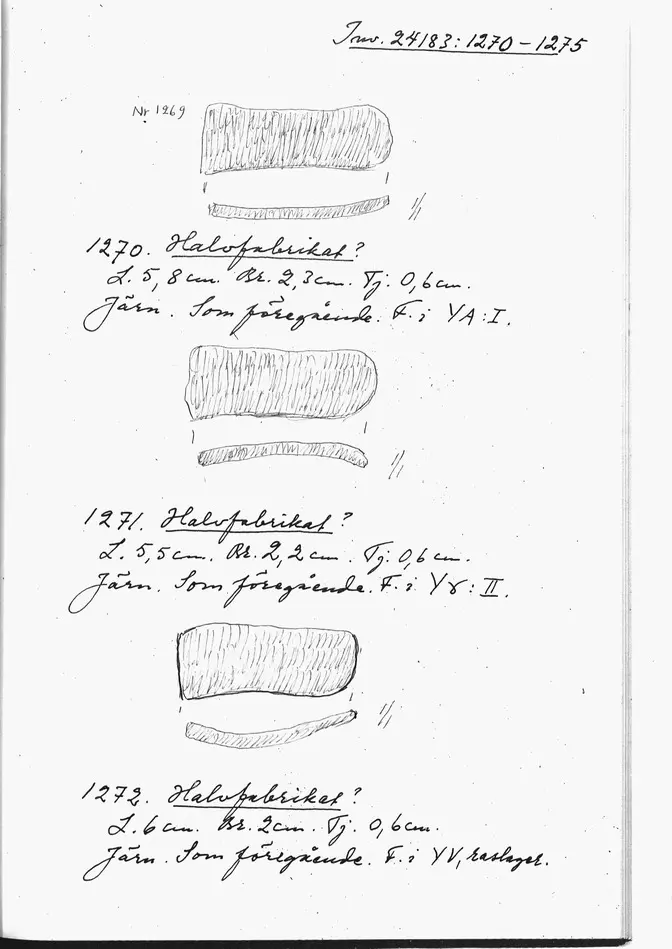 Inv. 24183:1270-1275
Nr 1269
1/1
1270. Halvfabrikat?
L. 5,8 cm. Br. 2,3 cm. Tj. 0,6 cm.
Järn. Som föregående. F. i YA:I.
1/1
1271. Halvfabrikat?
L. 5,5 cm. Br. 2,2 cm. Tj. 0,6 cm.
Järn. Som föregående. F. i Yγ:II.
1/1
1272. Halvfabrikat?
L. 6 cm. Br. 2 cm. Tj. 0,6 cm.
Järn. Som föregående. F. i YV, raslager.